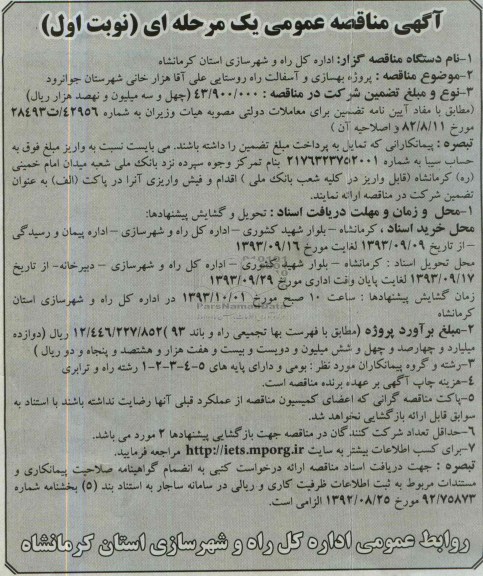 آگهی مناقصه عمومی یک مرحله ای (نوبت اول)
۱-نام دستگاه مناقصه گزار: اداره کل راه و شهرسازی استان کرمانشاه
۲-موضوع مناقصه : پروژه بهسازی و آسفالت راه روستایی علی آقا هزار خانی شهرستان جوانرود
۳-نوع و مبلغ تضمین شرکت در مناقصه : ۴۳/۹۰۰/۰۰۰ (چهل و سه میلیون و نهصد هزار ریال)
(مطابق با مفاد آیین نامه تضمین برای معاملات دولتی مصوبه هیات وزیران به شماره ۴۲۹۵۶/ت۲۸۴۹۳
مورخ ۸۲/۸/۱۱ و اصلاحیه آن )
تبصره : پیمانکارانی که تمایل به پرداخت مبلغ تضمین را داشته باشند. می بایست نسبت به واریز مبلغ فوق به
حساب سیبا به شماره ۲۱۷۶۳۲۳۷۵۲۰۰۱ بنام تمرکز وجوه سپرده نزد بانک ملی شعبه میدان امام خمینی
(ره) کرمانشاه (قابل واریز در کلیه شعب بانک ملی ) اقدام و فیش واریزی آنرا در پاکت (الف) به عنوان
تضمین شرکت در مناقصه ارائه نمایند.
۱-محل و زمان و مهلت دریافت اسناد : تحویل و گشایش پیشنهادها:
محل خرید اسناد ، کرمانشاه – بلوار شهید کشوری – اداره کل راه و شهرسازی – اداره پیمان و رسیدگی
– از تاریخ ۱۳۹۳/۰۹/۰۹ لغایت مورخ ۱۳۹۳/۰۹/۱۶
محل تحویل اسناد : کرمانشاه – بلوار شهید کشوری – اداره کل راه و شهرسازی – دبیرخانه- از تاریخ
۱۳۹۳/۰۹/۱۷ لغایت پایان وقت اداری مورخ ۱۳۹۳/۰۹/۲۹
زمان گشایش پیشنهادها : ساعت ۱۰ صبح مورخ ۱۳۹۳/۱۰/۰۱ در اداره کل راه و شهرسازی استان
کرمانشاه
۲-مبلغ برآورد پروژه (مطابق با فهرست بها تجمیعی راه و باند ۹۳ ) ۱۲/۴۴۶/۲۲۷/۸۵۲ ریال (دوازده
میلیارد و چهارصد و چهل و شش میلیون و دویست و بیست و هفت هزار و هشتصد و پنجاه و دو ریال )
۳-رشته و گروه پیمانکاران مورد نظر : بومی و دارای پایه های ۵-۴-۳-۲-۱ رشته راه و ترابری
۴-هزینه چاپ آگهی بر عهده برنده مناقصه است.
۵-پاکت مناقصه گرانی که اعضای کمیسیون مناقصه از عملکرد قبلی آنها رضایت نداشته باشند با استناد به
سوابق قابل ارائه بازگشایی نخواهد شد.
۶-حداقل تعداد شرکت کنندگان در مناقصه جهت بازگشایی پیشنهادها ۲ مورد می باشد.
۷-برای کسب اطلاعات بیشتر به سایت http://iets.mporg.ir مراجعه فرمایید.
تبصره : جهت دریافت اسناد مناقصه ارائه درخواست کتبی به انضمام گواهینامه صلاحیت پیمانکاری و
مستندات مربوط به ثبت اطلاعات ظرفیت کاری و ریالی در سامانه ساجار به استناد بند (۵) بخشنامه شماره
۹۲/۷۵۸۷۳ مورخ ۱۳۹۲/۰۸/۲۵ الزامی است.
روابط عمومی اداره کل راه و شهرسازی استان کرمانشاه